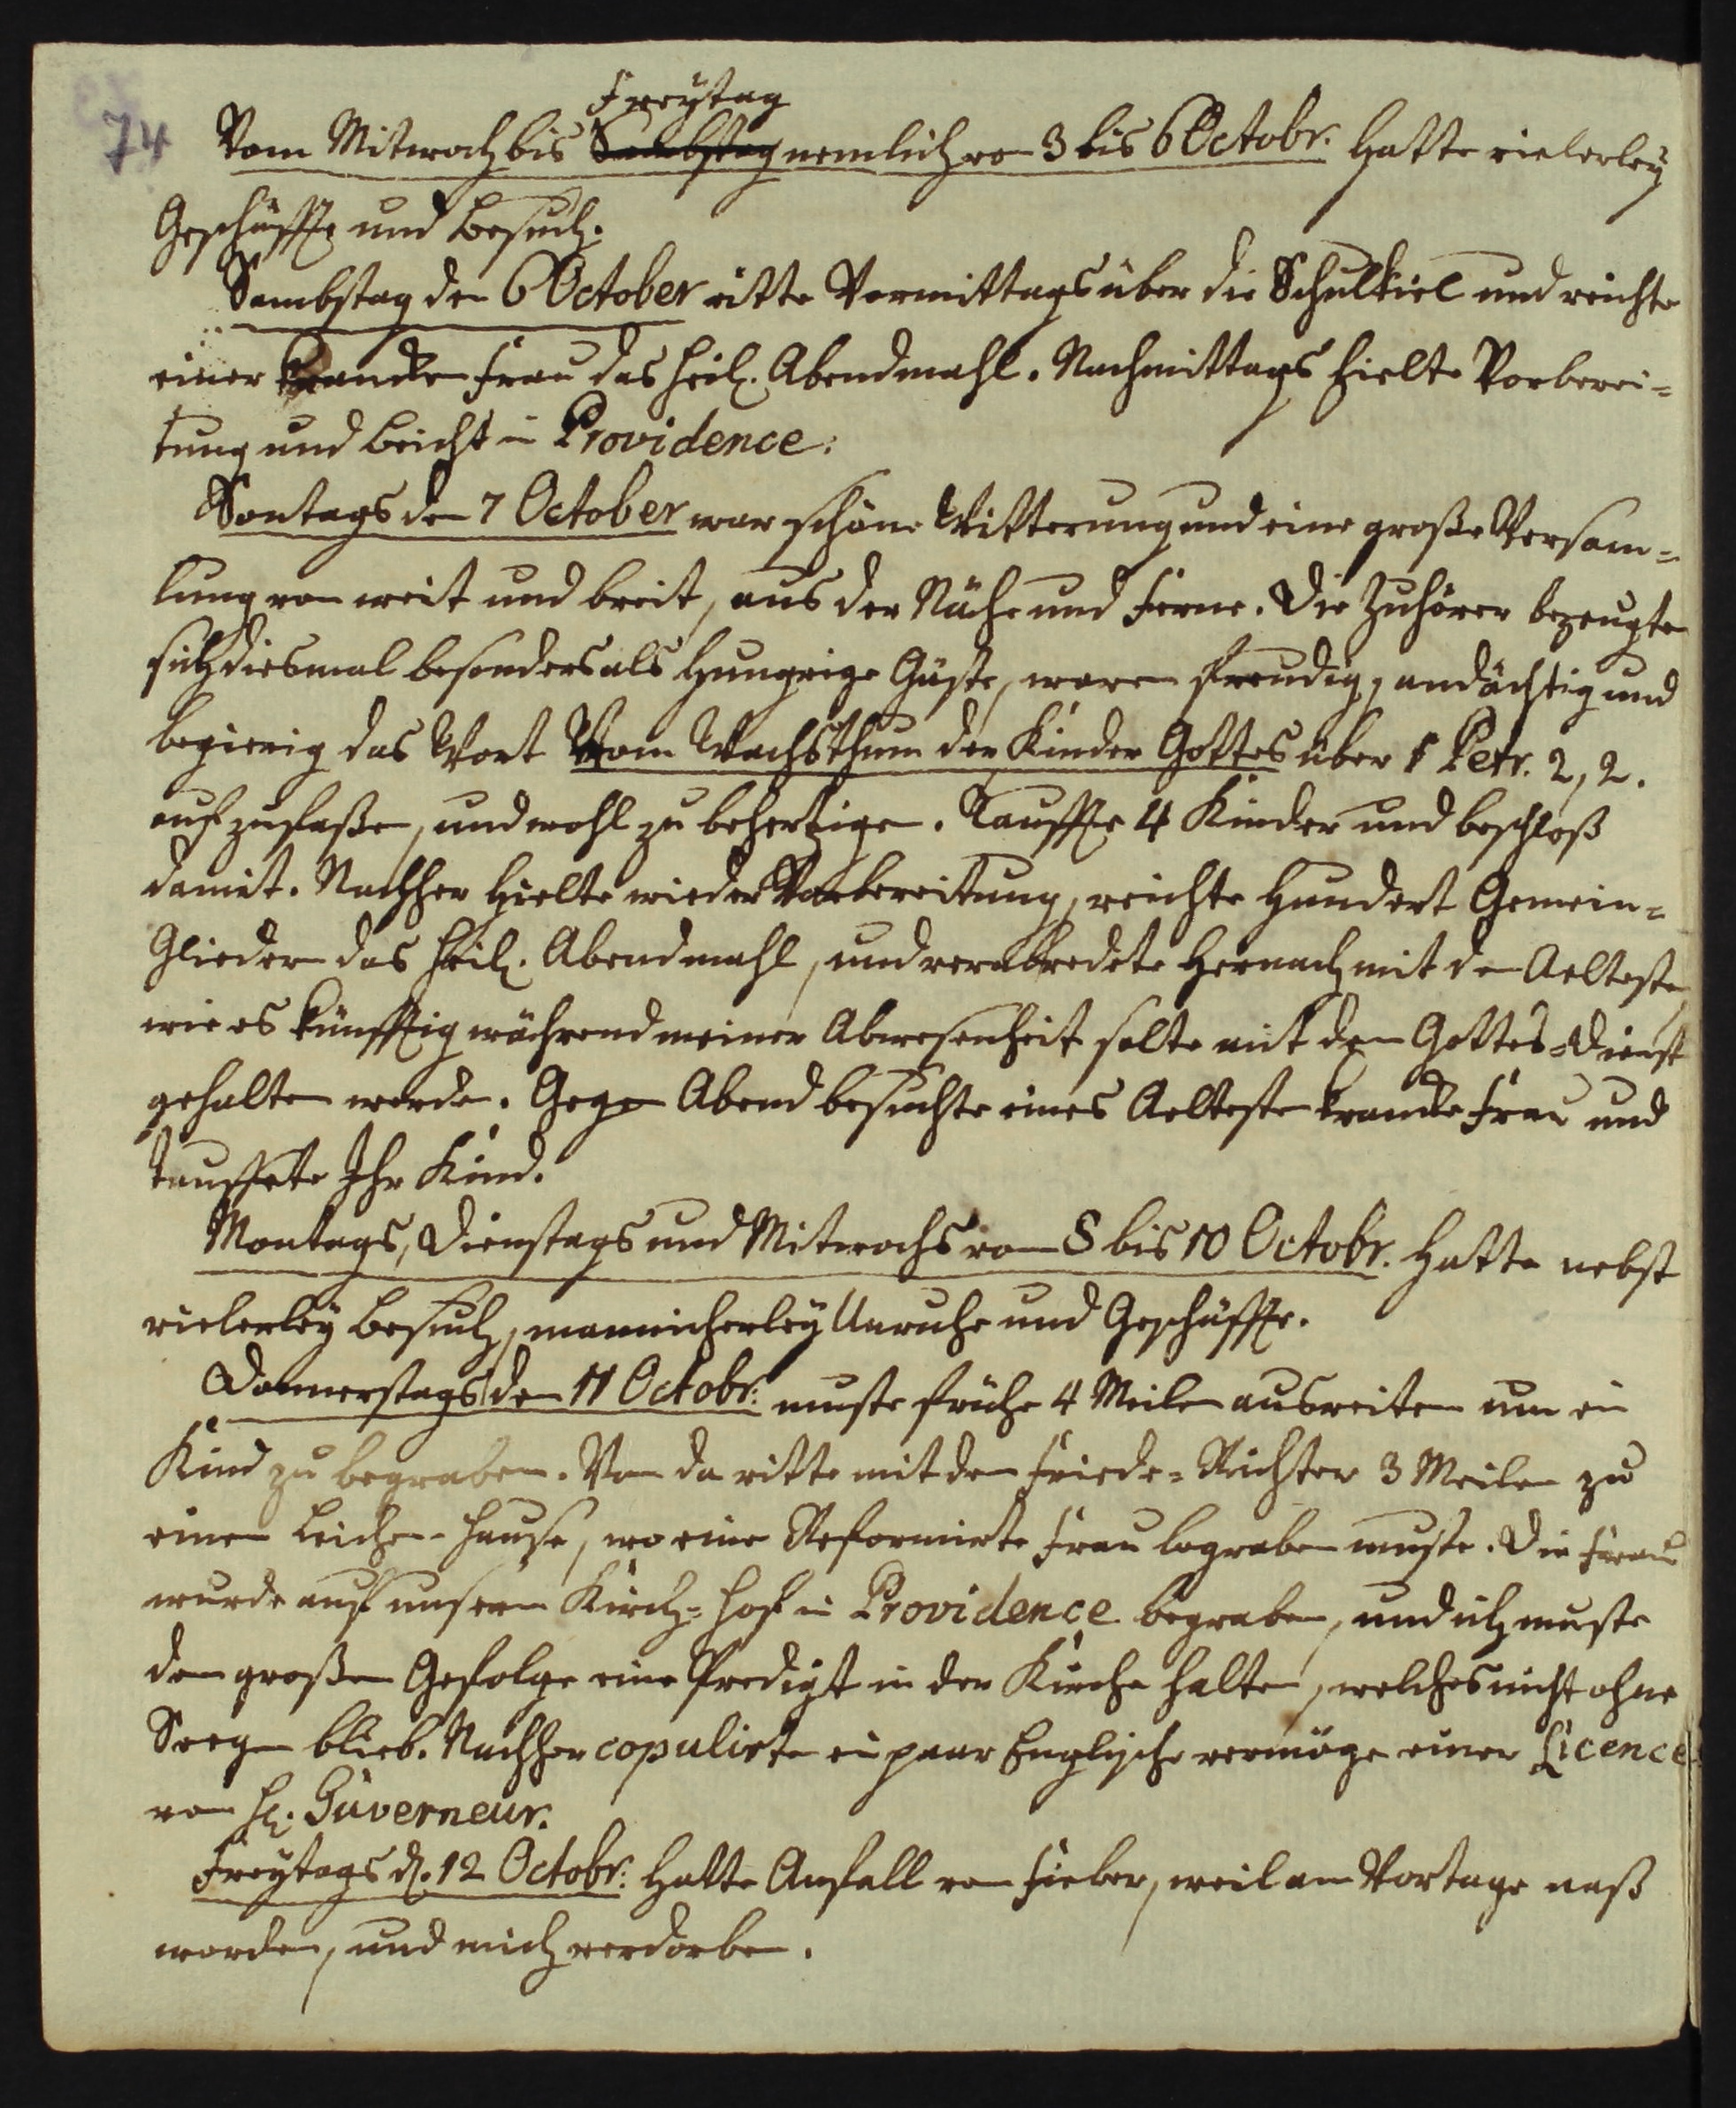 74
Freytag
Vom Mitwoch bis Sambstag nemlich von 3 bis 6 Octobr. hatte vielerley
Geschäffte und Besuch.
Sambstag den 6 October ritte Vormittags über die Schulkiel und reichte
einer krancken Frau das heil. Abendmahl. Nachmittags hielte Vorberei=
tung und Beicht in Providence.
Sontags den 7 October war schöne Witterung und eine große Versam=
lung von weit und breit, aus der Nähe und Ferne. Die Zuhörer bezeugten
sich diesmal besonders als hungrige Gäste, waren freudig, andächtig und
begierig das Wort Vom Wachsthum der Kinder Gottes über 1 Petr. 2, 2.
aufzufaßen, und wohl zu behertzigen. Tauffte 4 Kinder und beschloß
damit. Nachher hielte wieder Vorbereitung, reichte hundert Gemein=
Gliedern das heil. Abendmahl, und verabredete hernach mit den Aeltesten
wie es künfftig während meiner Abwesenheit solte mit dem Gottes=Dienst
gehalten werden. Gegen Abend besuchte eines Aeltesten krancke Frau und
tauffete Ihr Kind.
Montags, Dienstags und Mitwochs von 8 bis 10 Octobr. hatte nebst
vielerley Besuch, mannicherley Unruhe und Geschäffte.
Donnerstags den 11 Octobr: muste frühe 4 Meilen ausreiten um ein
Kind zu begraben. Von da ritte mit dem Friede=Richter 3 Meilen zu
einem Leichen-Hause, wo eine Reformirte Frau begraben muste. Die Frau
wurde auf unserm Kirch=Hof in Providence begraben, und ich muste
dem großen Gefolge eine Predigt in der Kirche halten, welches nicht ohne
Seegen blieb. Nachher copulirte ein paar Englische vermöge einer Licence
vom H. Guverneur.
Freytags d. 12 Octobr: hatte Anfall vom Fieber, weil am Vortage naß
worden, und mich verdorben.